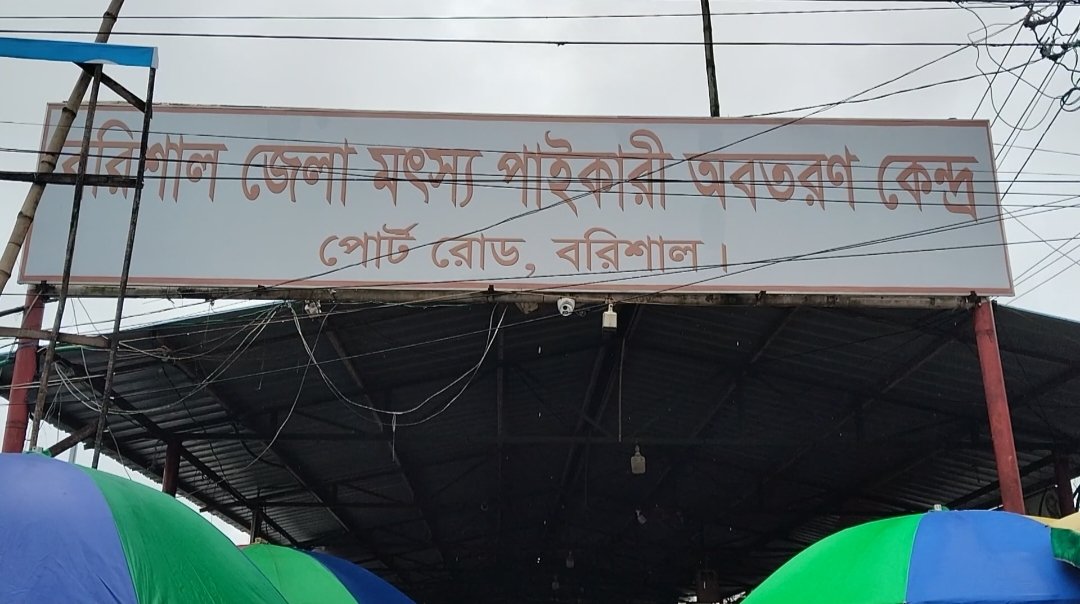 বরিশাল জেলা মৎস্য পাইকারী অবতরণ কেন্দ্র
পোর্ট রোড, বরিশাল।